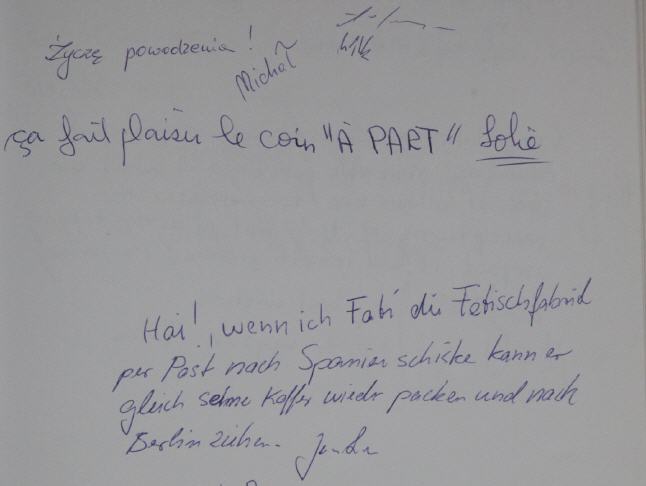 Życzę powodzenia!
Michał
ça fait plaisir le coin "À PART"
Hai!, wenn ich Fabi die Fetischfabrik
per Post nach Spanien schicke kann er
gleich seine Koffer wieder packen und nach
Berlin ziehen.